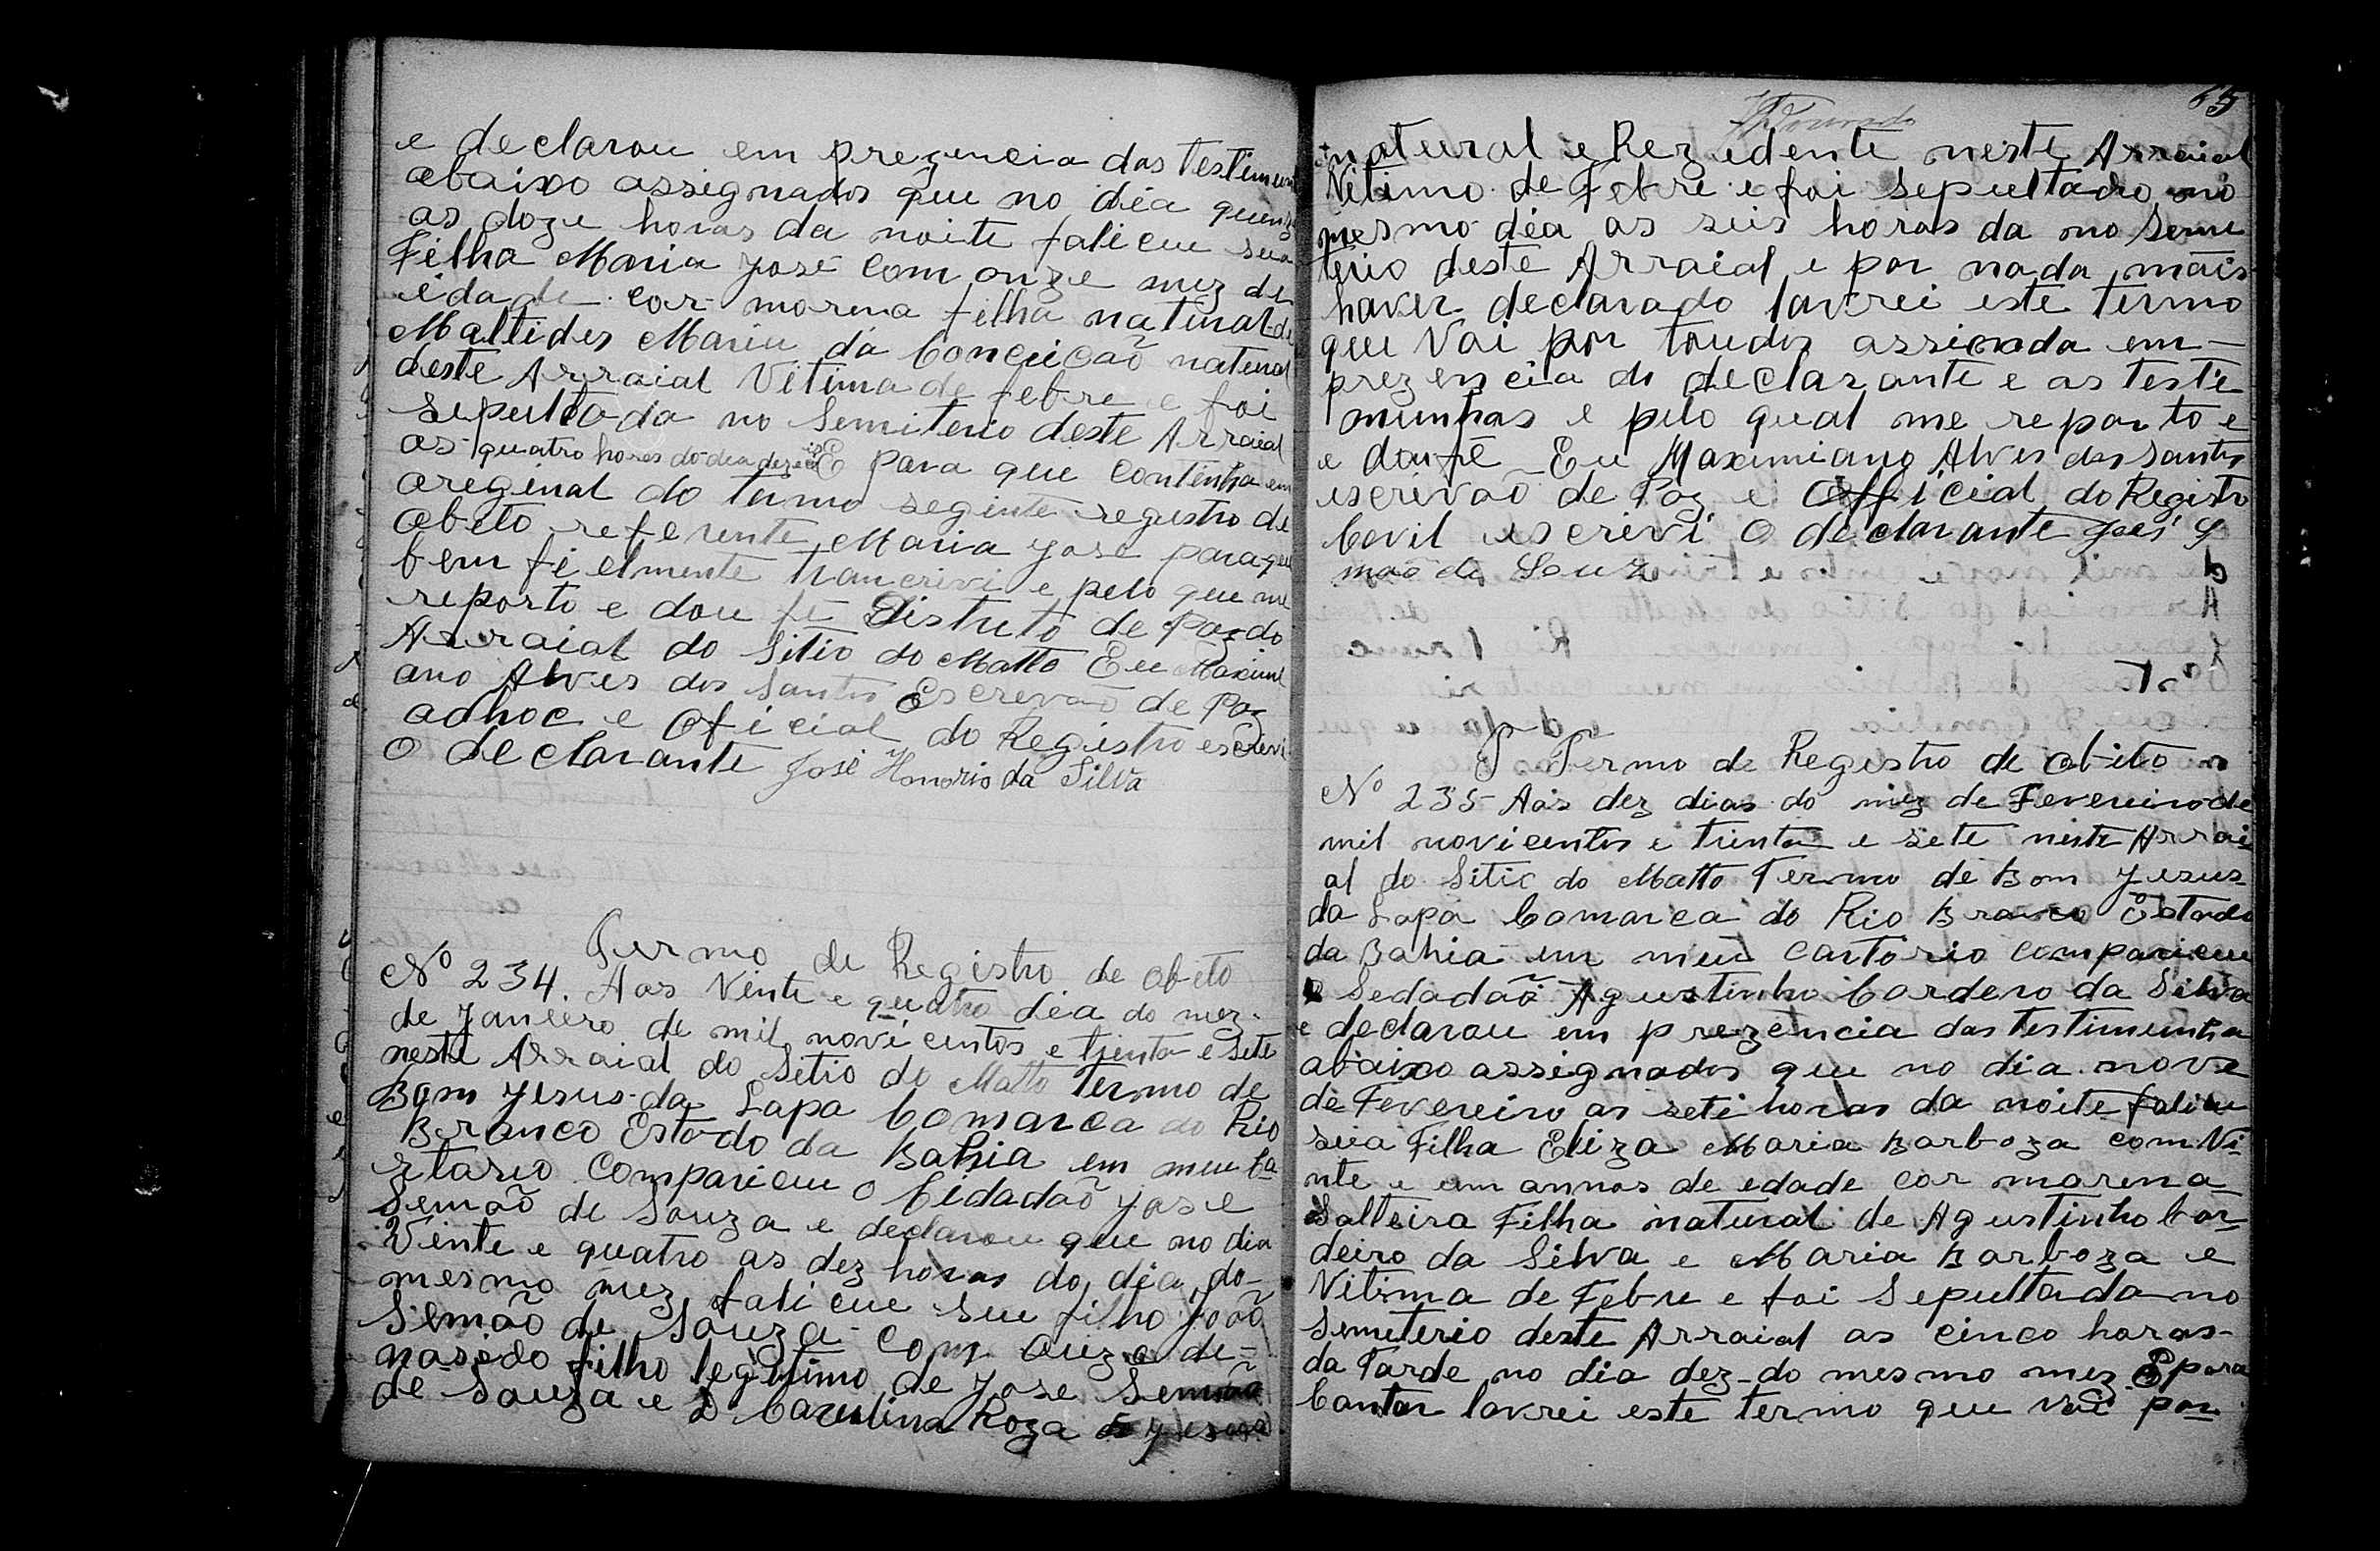 e declarou em prezencia das testimun
abaixo assignados que no dia quinze
as doze horas da noite faliceu sua
Filha Maria José com onze mez de
idade cor morena filha natural de
Maltides Maria da Conceicaõ natural
deste Arraial Vitima de febre e foi
sepultada no Semiterio deste Arraial
as quatro horas do dia dezeis E para que contenha em
areginal do termo seginte registro de
abito referente Maria José para que
bem fielmente trancrivi e pelo que me
reporto e dou fé Distrito de Paz do
Arraial do Sitio do Matto Eu Maximi
ano Alves dos Santos Escrevaõ de Paz
adhoc e Oficial do Registro escrevi
O declarante José Honorio da Silva
Termo de Registro de abito
Nº 234. Aos Vinte e quatro dia do mez
de Janeiro de mil novicentos e trinta e sete
neste Arraial do Setio do Matto termo de
Bom Jesus da Lapa Comarca do Rio
Branco Estado da Bahia em meu Ca
rtario Compariceu o Cidadaõ Jose
Semaõ de Souza e declarou que no dia
Vinte e quatro as dez horas do dia do
mesmo mez faliceu seu filho Joaõ
Semaõ de Souza com
nasido filho legitimo de Jose Semaõ
de Souza e D. Carulina Roza
65
natural e Rezedente neste Arraial
Vitimo de Febre e foi sepultado no
mesmo dia as seis horas da no Seme
terio deste Arraial e por nada mais
haver declarado lavrei este termo
que Vai por toudos assinada em
prezencia do declarante e as teste
munhas e pelo qual me reporto e
e dou fé Eu Maximiano Alves dos Santos
escrivaõ de Paz e Official do Registro
Cevil escrivi O declarante José
maõ de Souz
Termo de Registro de abito
Nº 235 Aos dez dias do mez de Fevereiro de
mil novicentos e trinta e sete neste Arrai
al do Sitio do Matto Termo de Bom Jesus
da Lapa Comarca do Rio Branco Estado
da Bahia em meu cartorio compariceu
o Sedadaõ Agustinho Cordero da Silva
e declarou em prezencia das testimunha
abaixo assignados que no dia nove
de Fevereiro as sete horas da noite faliceu
sua Filha Eliza Maria Barboza com Vi
nte e um annos de edade cor morena
Salteira Filha natural de Agustinho Cor
deiro da Silva e Maria Barboza e
Vitima de Febre e foi Sepultada no
Semeterio deste Arraial as cinco horas
da tarde no dia dez do mesmo mez E para
Constar lavrei este termo que vai por